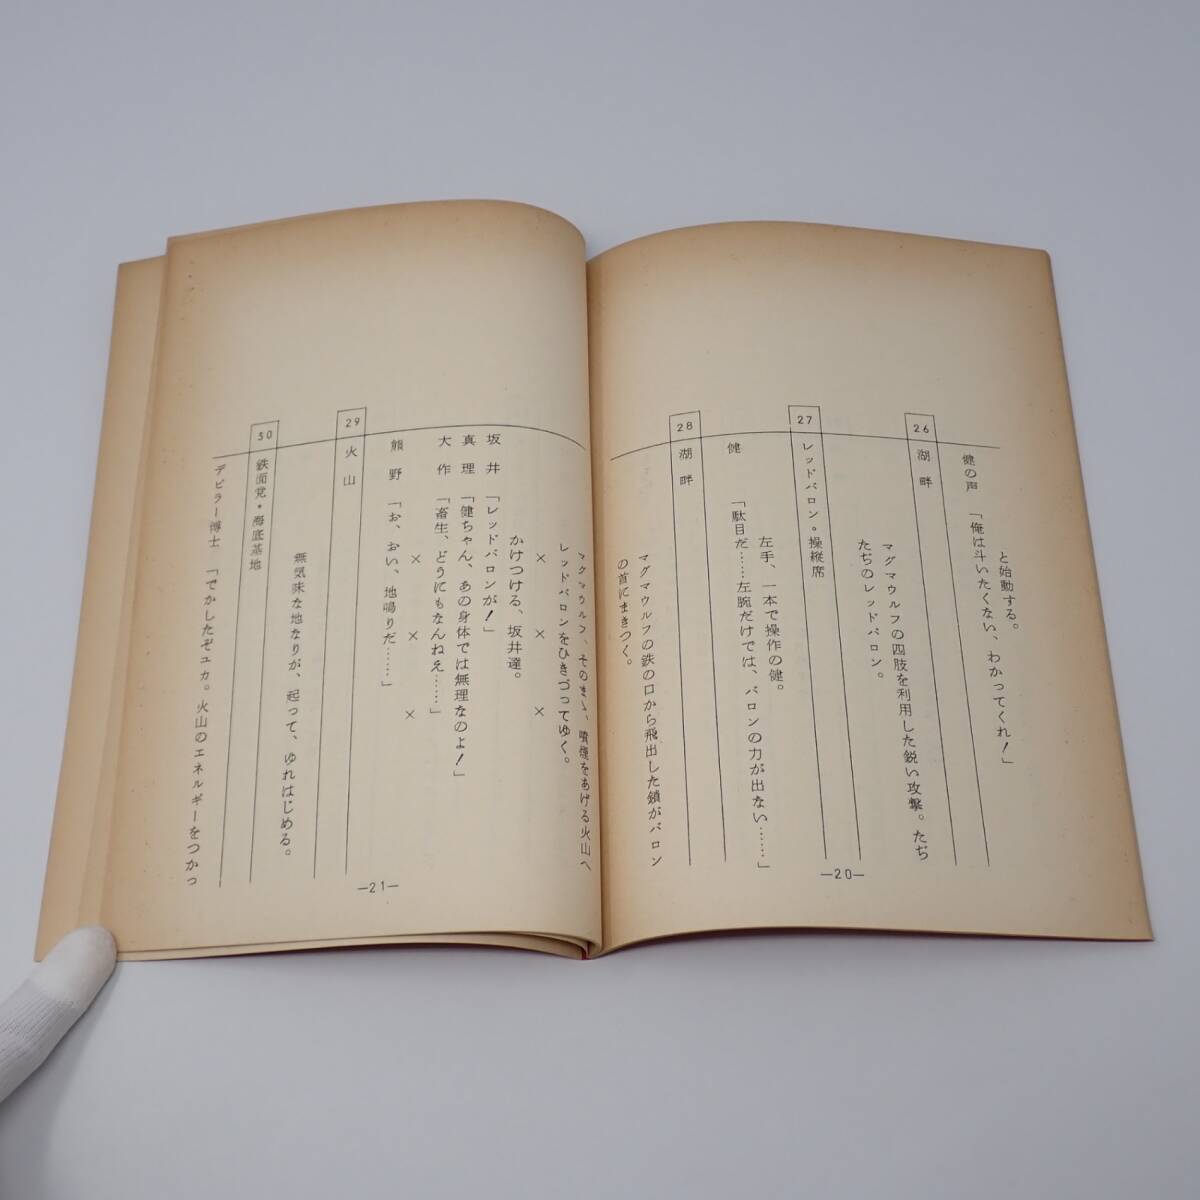 と始動する。
健の声「俺は斗いたくない、わかってくれ！」
26 湖畔
マグマウルフの四肢を利用した鋭い攻撃。たぢ
たぢのレッドバロン。
27 レッドバロン。操縦席
左手、一本で操作の健。
健「駄目だ……左腕だけでは、バロンの力が出ない……」
28 湖畔
マグマウルフの鉄の口から飛出した鎖がバロン
の首にまきつく。
—20—
マグマウルフ、そのまゝ、噴煙をあげる火山へ
レッドバロンをひきづってゆく。
× × ×
かけつける、坂井達。
坂井「レッドバロンが！」
真理「健ちゃん、あの身体では無理なのよ！」
大作「畜生、どうにもなんねえ……」
× × ×
熊野「お、おい、地鳴りだ……」
29 火山
無気味な地なりが、起って、ゆれはじめる。
30 鉄面党・海底基地
デビラー博士「でかしたぞユカ。火山のエネルギーをつかっ
—21—